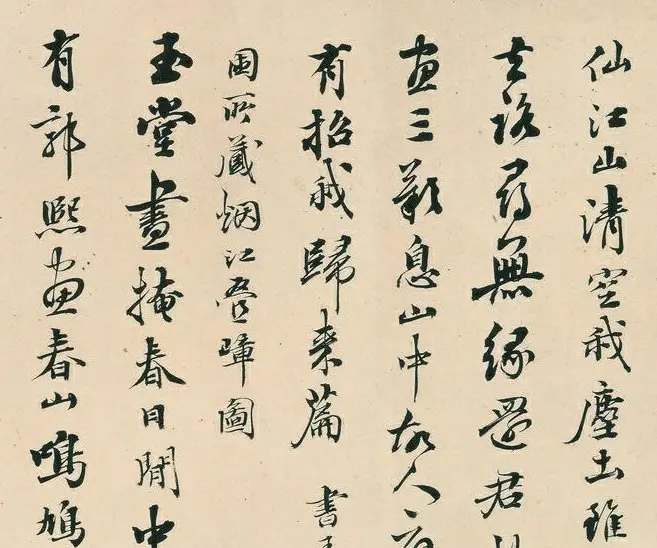 仙江山清空我塵土雖
去路尋無緣還君此
畫三歎息山中故人應
有招我歸來篇 書王
國所藏烟江疊嶂圖
玉堂晝掩春日閒中
有郭熙畫春山鳴鳩